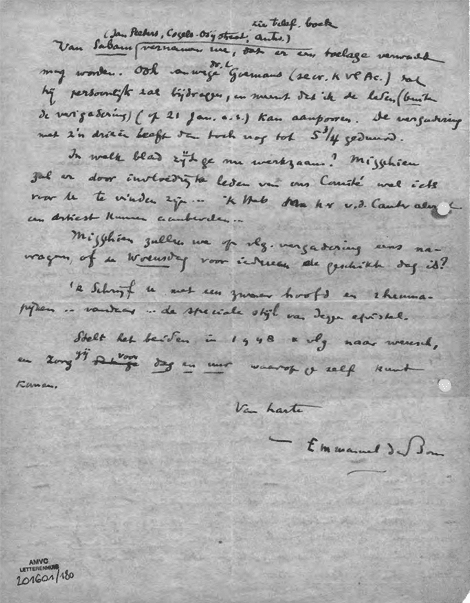 zie telef. boek
(Jan Peeters, Cogels-Osystraat, Antw.)
Van Sabam vernamen we, dat er een toelage verwacht
mag worden. Ook vanwege Dr. L. Goemans (secr. K Vl Ac.) zal
hij persoonlijk zal bijdragen, en meent dat ik de leden (buiten
de vergadering) (op 21 Jan. a.s.) kan aanporren. De vergadering
met z'n drieën heeft dan toch nog tot 5 3/4 geduurd.
In welk blad zijt ge nu werkzaam? Misschien
zal er door invloedrijke leden van ons Comité wel iets
voor U te vinden zijn... ik heb v.d.
en artiest kunnen aanbevelen...
Misschien zullen we op vlg. vergadering eens na-
vragen, of u Woensdag voor iedereen de geschikte dag is?
'k Schrijf u met een zwaar hoofd en rheuma-
pijnen .. vandaar .. de speciale stijl van dezen epistel.
Stelt het beiden in 1948 vlg naar wensch,
en zorg gij voor dag en uur waarop je zelf kunt
komen.
Van harte
Emmanuel De Bom
AMVC
LETTERENHUIS
201601/180